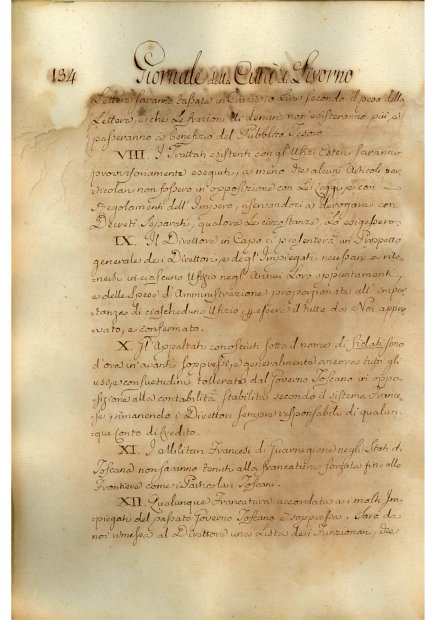 134 Giornale della Città di Livorno
Lettere saranno tassate in Crazie, o Lire secondo il peso della
Lettera, e che Le frazioni di denari non esisteranno più, e
passeranno a benefizio del Pubblico Tesoro
VIII. I Trattati esistenti con gli Ufizi Esteri saranno
provvisoriamente eseguiti, a meno che alcuni Articoli par-
ticolari non fossero in opposizione con Le Leggi, e con
Regolamenti dell' Impero, riservandoci a derogare con
Decreti Separati, qualora Le circostanze Lo esigessero.
IX. Il Direttore in Capo ci presenterà un Progetto
generale dei Direttori, e degl' Impiegati necessari a rite-
nersi in ciascuno Ufizio negl' Annui Loro appuntamenti,
e delle Spese d'Amministrazione proporzionata all' impor-
tanza di ciascheduno Ufizio, essere il tutto da Noi appro-
vato, e confermato.
X. Gl' Appaltati conosciuti sotto il nome di fidati sono
d'ora in avanti soppressi, e generalmente ancora tutti gli
usi, e consuetudini tollerate dal Governo Toscano in oppo-
sizione alla contabilità stabilita secondo il sistema France-
se rimanendo i Direttori sempre responsabili di qualun-
que Conto di Credito.
XI. I Militari Francesi di Guarnigione negli Stati di
Toscana non saranno tenuti alla francatura forzata fino alle
Frontiere come i Particolari Toscani.
XII. Qualunque Francatura accordata ai molti Im-
piegati del passato Governo Toscano è soppressa. Sarà da
noi rimessa al Direttore una Lista dei Funzionari, che